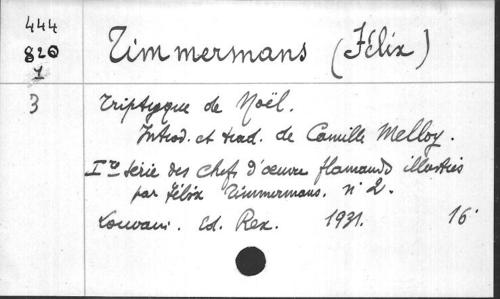 444
820
1
3
Timmermans (Félix)
Triptyque de Noël.
Introd. et trad. de Camille Melloy.
Ire série des chefs d'œuvre flamands illustrés
par Félix Timmermans. n° 2.
Louvain. Ed. Rex. 1931. 16°